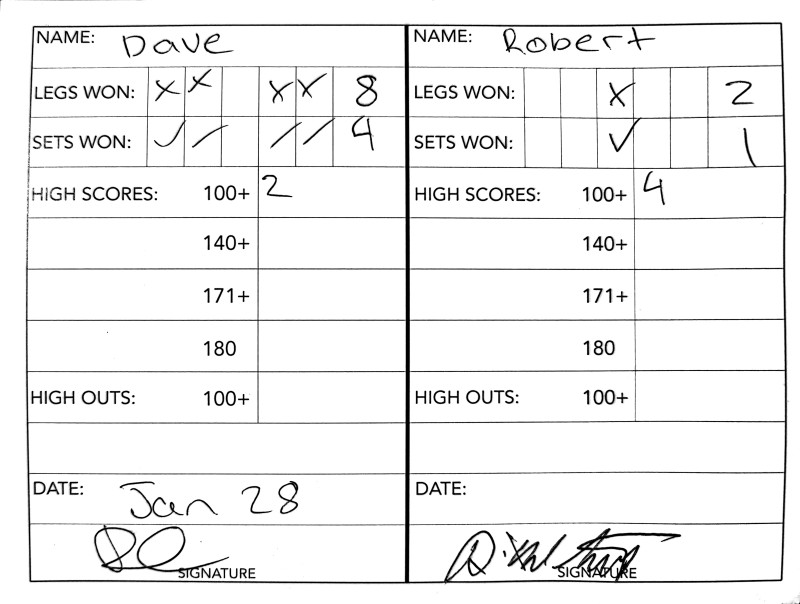 NAME: Dave
LEGS WON: X X X X 8
SETS WON: ✓ / / / 4
HIGH SCORES: 100+ 2
140+
171+
180
HIGH OUTS: 100+
DATE: Jan 28
SIGNATURE
NAME: Robert
LEGS WON: X 2
SETS WON: ✓ 1
HIGH SCORES: 100+ 4
140+
171+
180
HIGH OUTS: 100+
DATE:
SIGNATURE